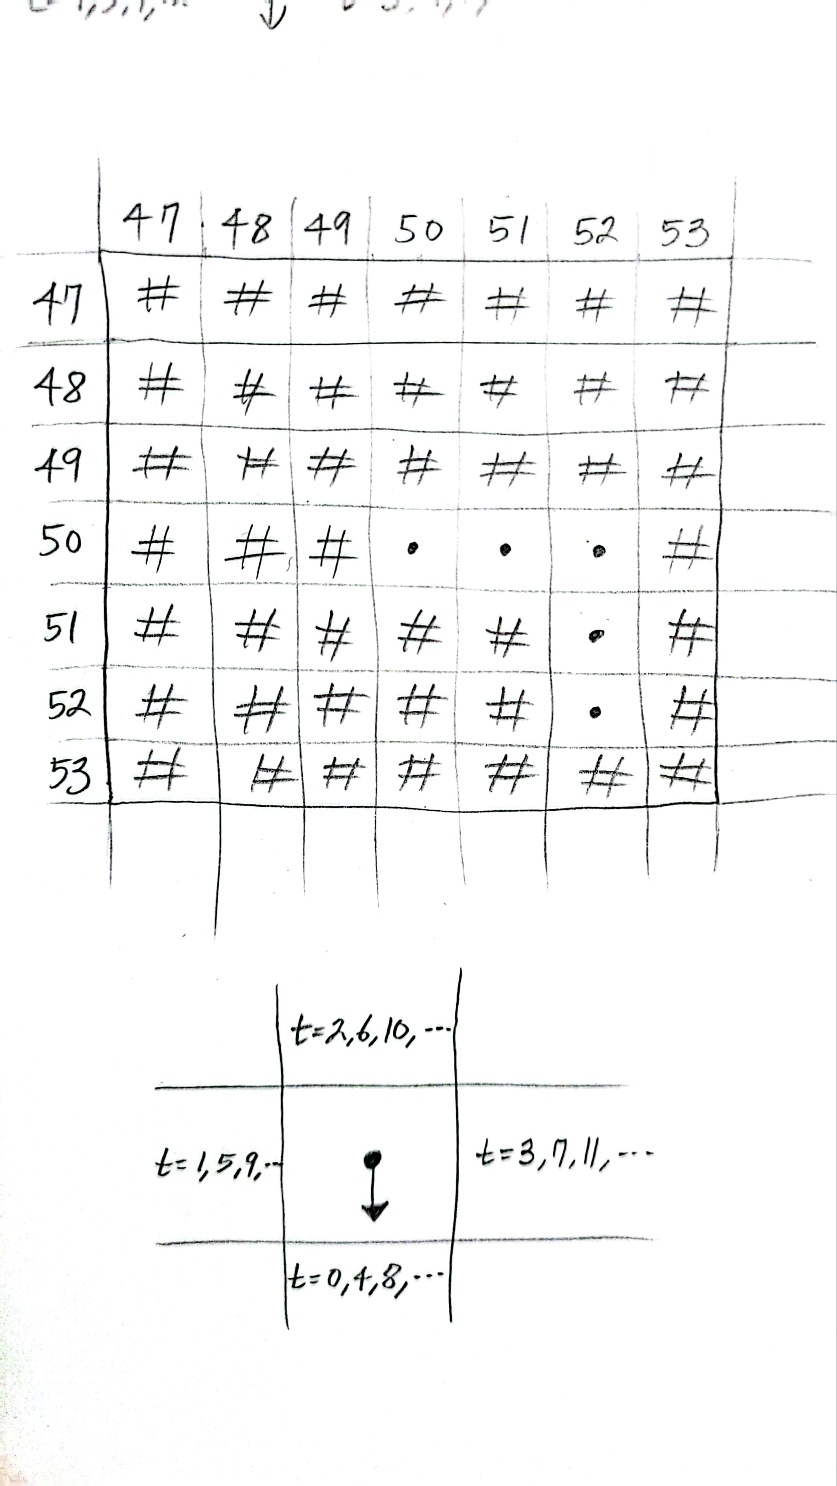 47 48 49 50 51 52 53
47 # # # # # # #
48 # # # # # # #
49 # # # # # # #
50 # # # • • • #
51 # # # # # • #
52 # # # # # • #
53 # # # # # # #
t=2,6,10,...
t=1,5,9,.. t=3,7,11,...
t=0,4,8,...